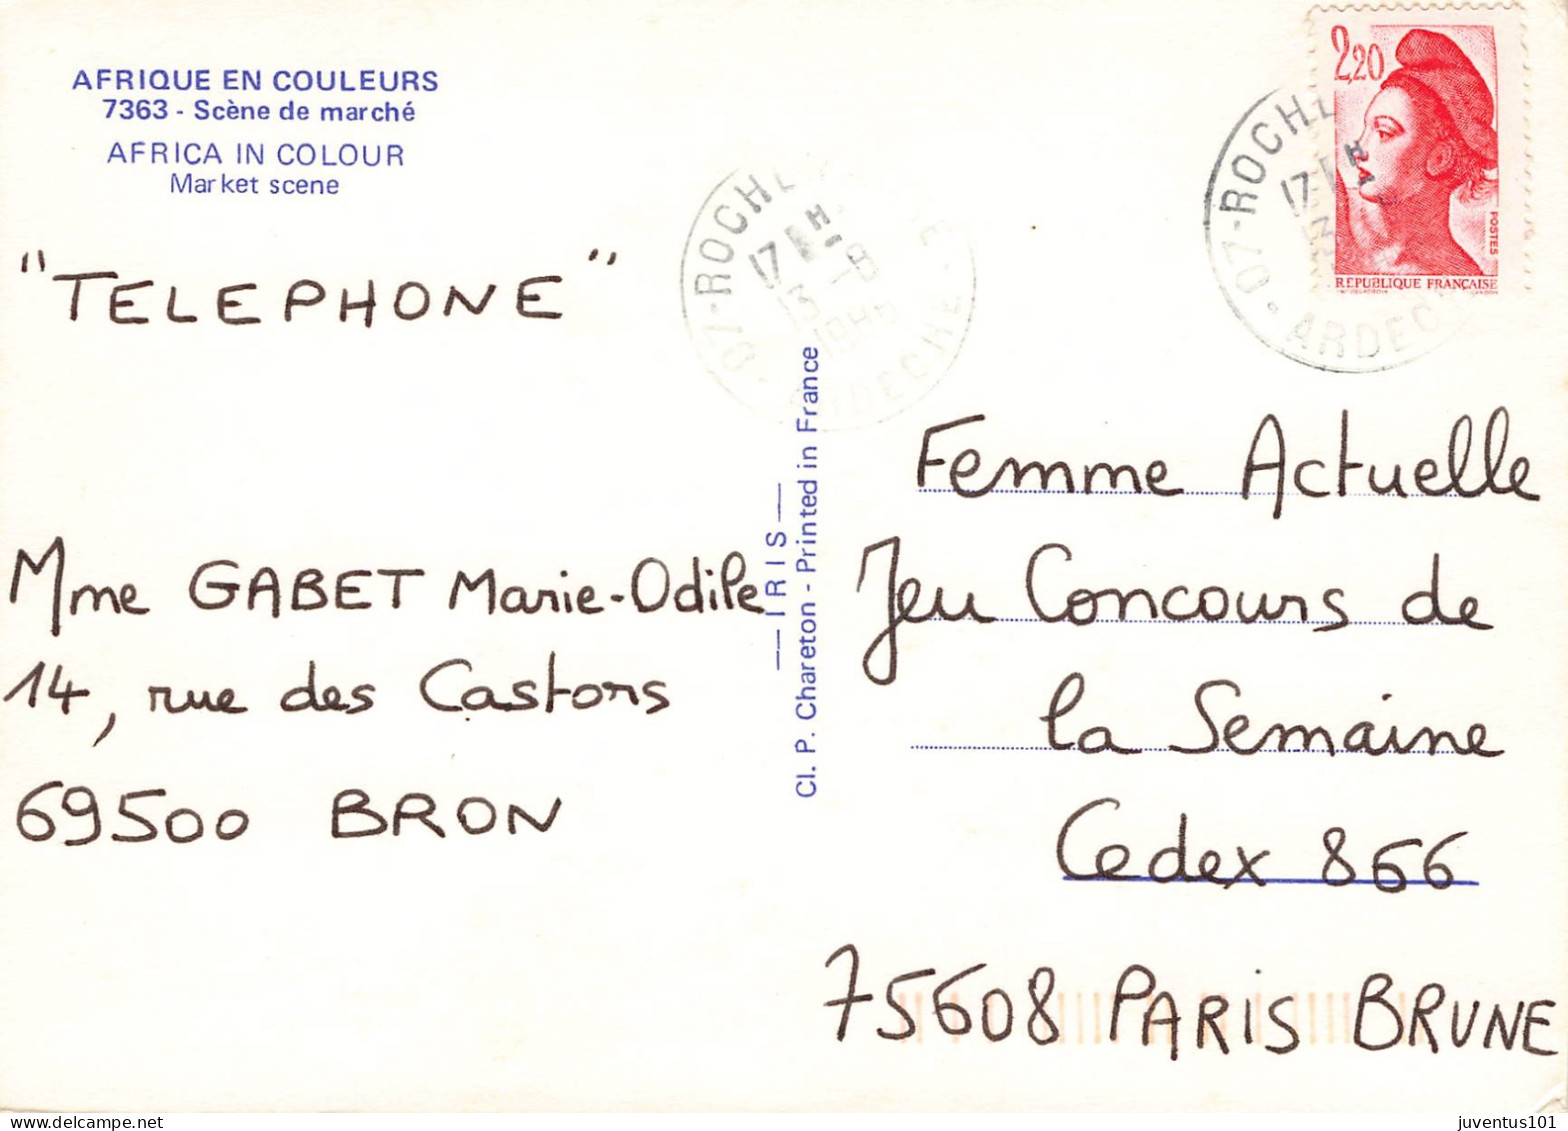 AFRIQUE EN COULEURS
7363 - Scène de marché
AFRICA IN COLOUR
Market scene
"TELEPHONE"
Mme GABET Marie-Odile
14, rue des Castors
69500 BRON
— IRIS —
Cl. P. Chareton - Printed in France
07-ROCHE
17 H
13 -8
ARDECHE
2,20
POSTES
REPUBLIQUE FRANÇAISE
07-ROCHE
17 H
13
ARDEC
Femme Actuelle
Jeu Concours de
la Semaine
Cedex 866
75608 PARIS BRUNE
juventus101